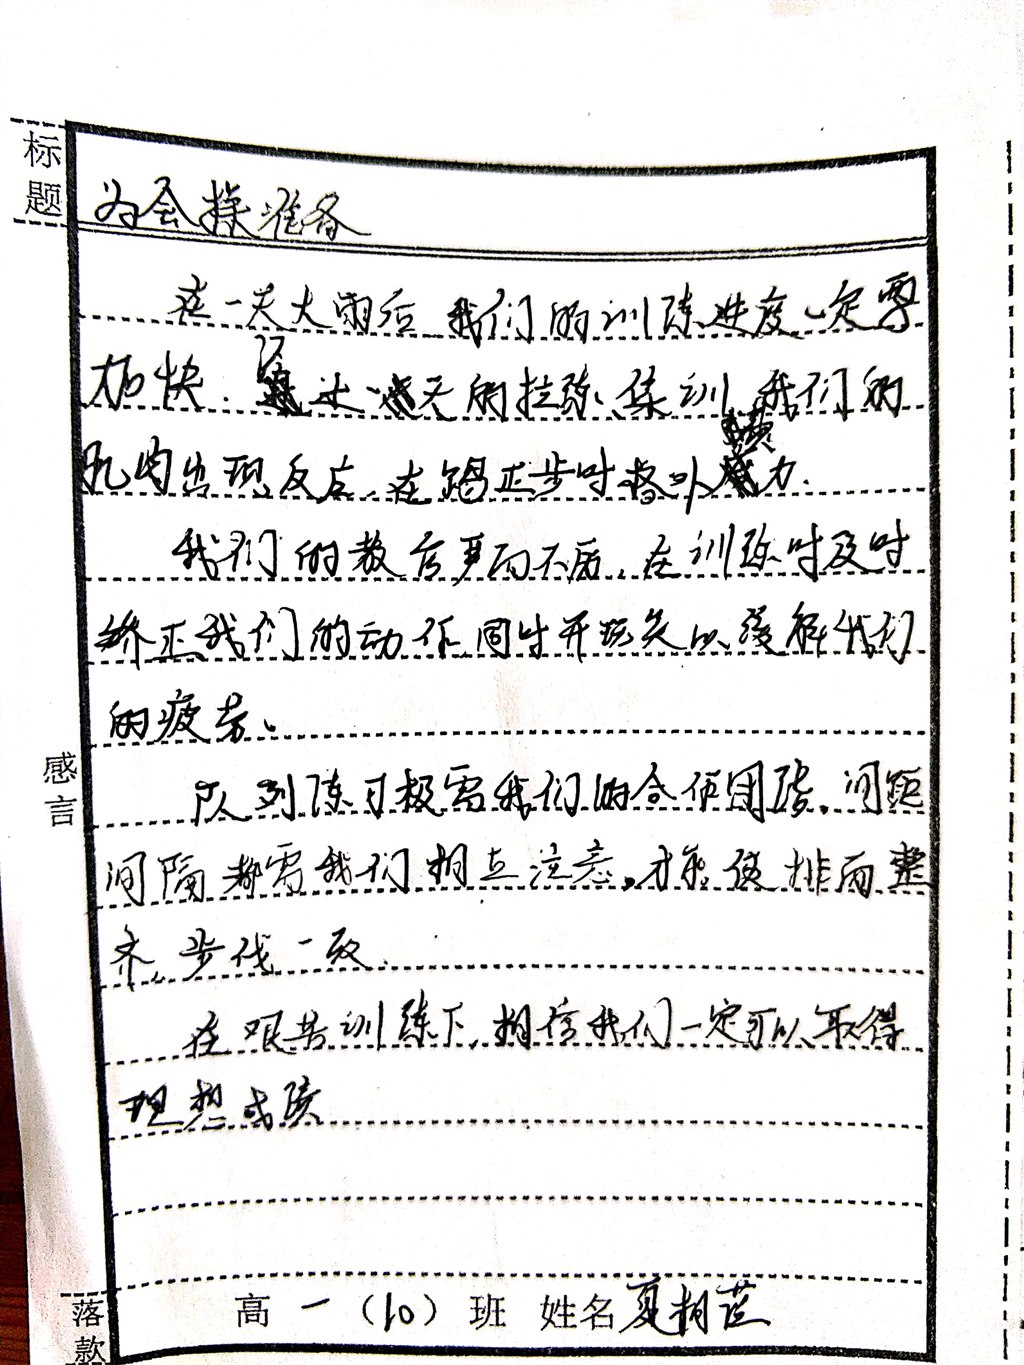 标题
为会操准备
在一天大雨后 我们的训练进度一定要
加快. 经过几天的拉练、集训, 我们的
肌肉出现反应, 在踢正步时格外费力.
我们的教官严而不厉, 在训练时及时
矫正我们的动作, 同时开玩笑以缓解我们
的疲劳、
队列练习极需我们的合作团结, 间距
间隔都需我们相互注意, 才能使排面整
齐, 步伐一致.
在艰苦训练下, 相信我们一定可以取得
理想成绩
感言
落款
高一(10)班 姓名夏相